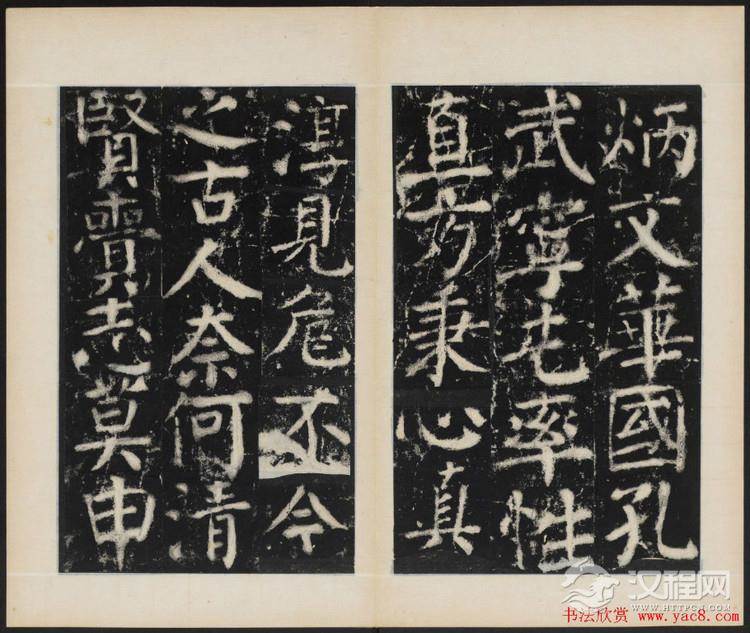 炳文華國孔
武寧屯率性
直方秉心真
淳見危不今
之古人奈何清
賢賫志莫申
汉程网
WWW.HTTPCN.COM
书法欣赏 www.yac8.com